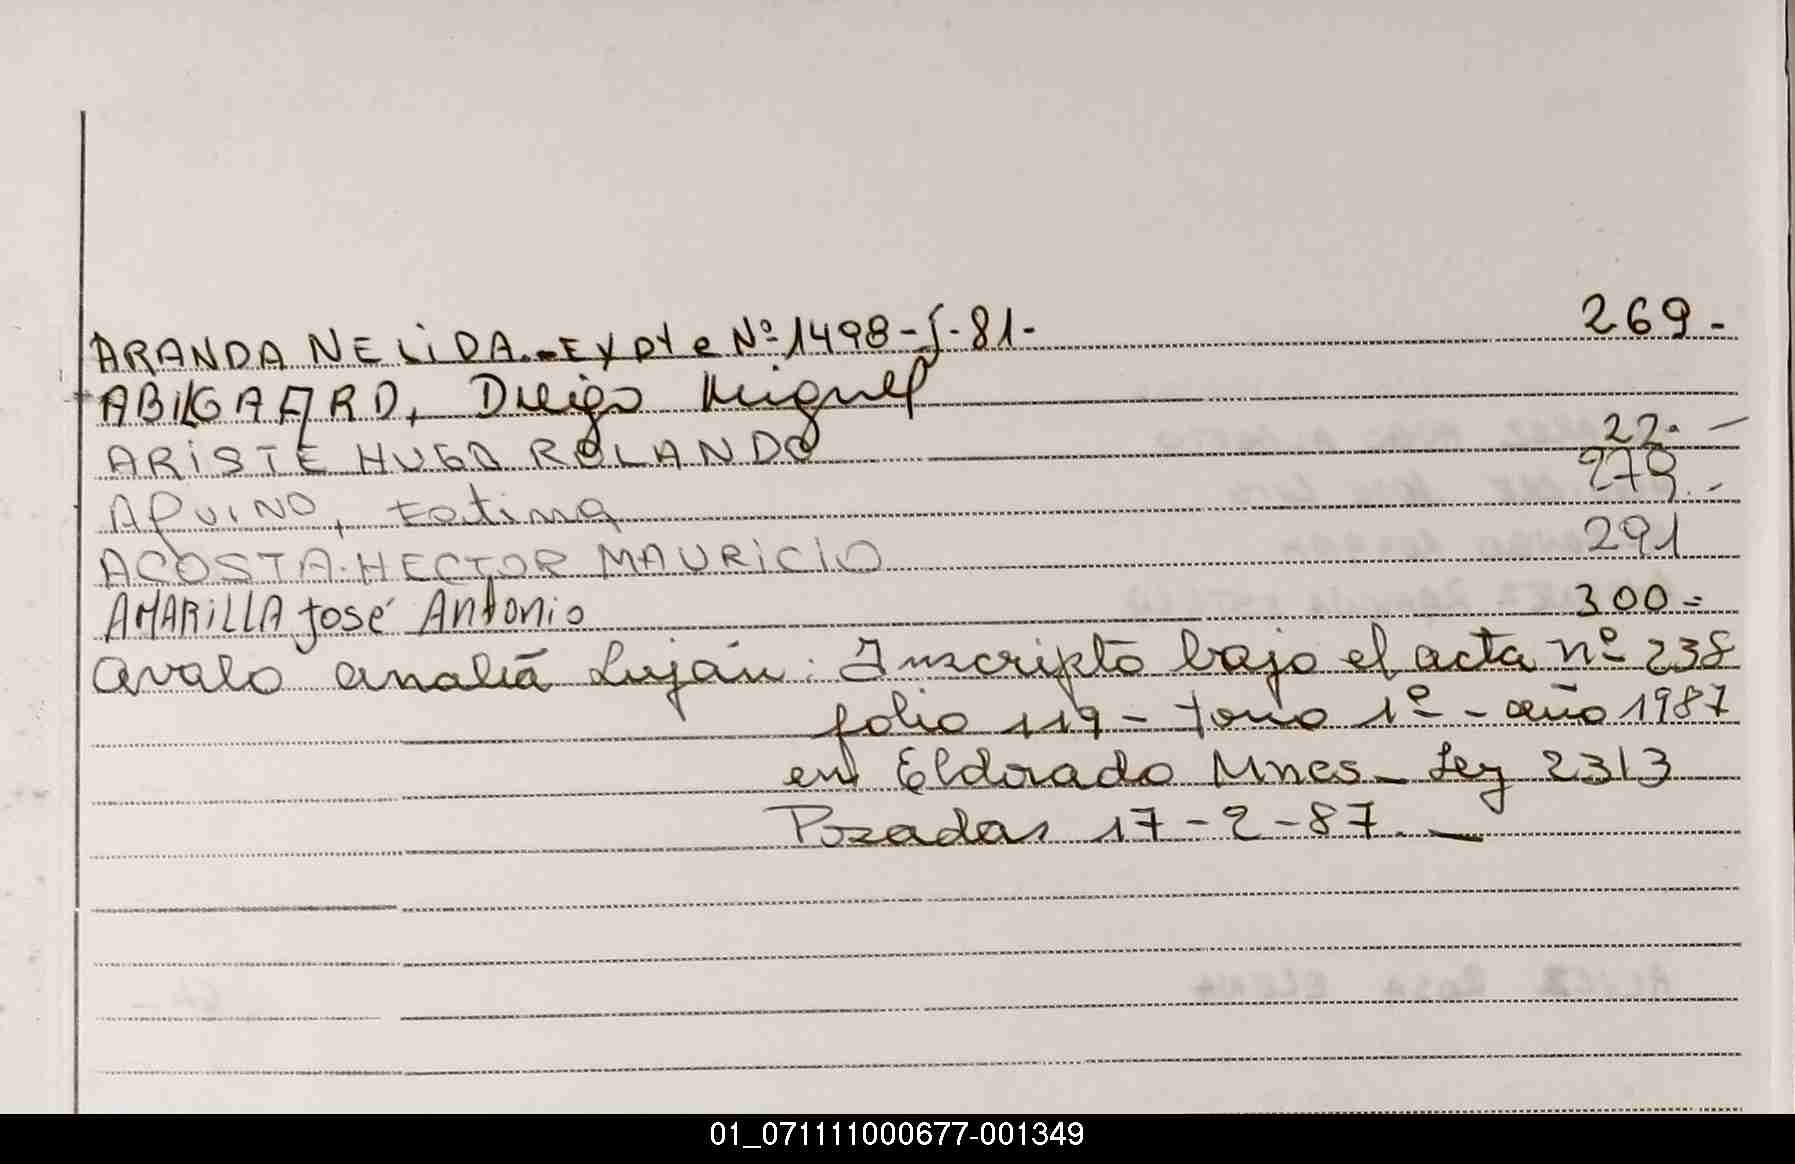 ARANDA NELIDA.-EXPte Nº1498-J-81- 269-
ABILGAARD, Diego Miguel
ARISTE HUGO ROLANDO 22.-
AQUINO, Fatima 279.-
ACOSTA.HECTOR MAURICIO 291
AMARILLA José Antonio 300-
Avalo Analiá Luján: Inscripto bajo el acta nº 238
folio 119- tomo 1º- año 1987
en Eldorado Mnes- Ley 2313
Pozadas 17-2-87.
ALVEZ ROSA ELENA
01_071111000677-001349